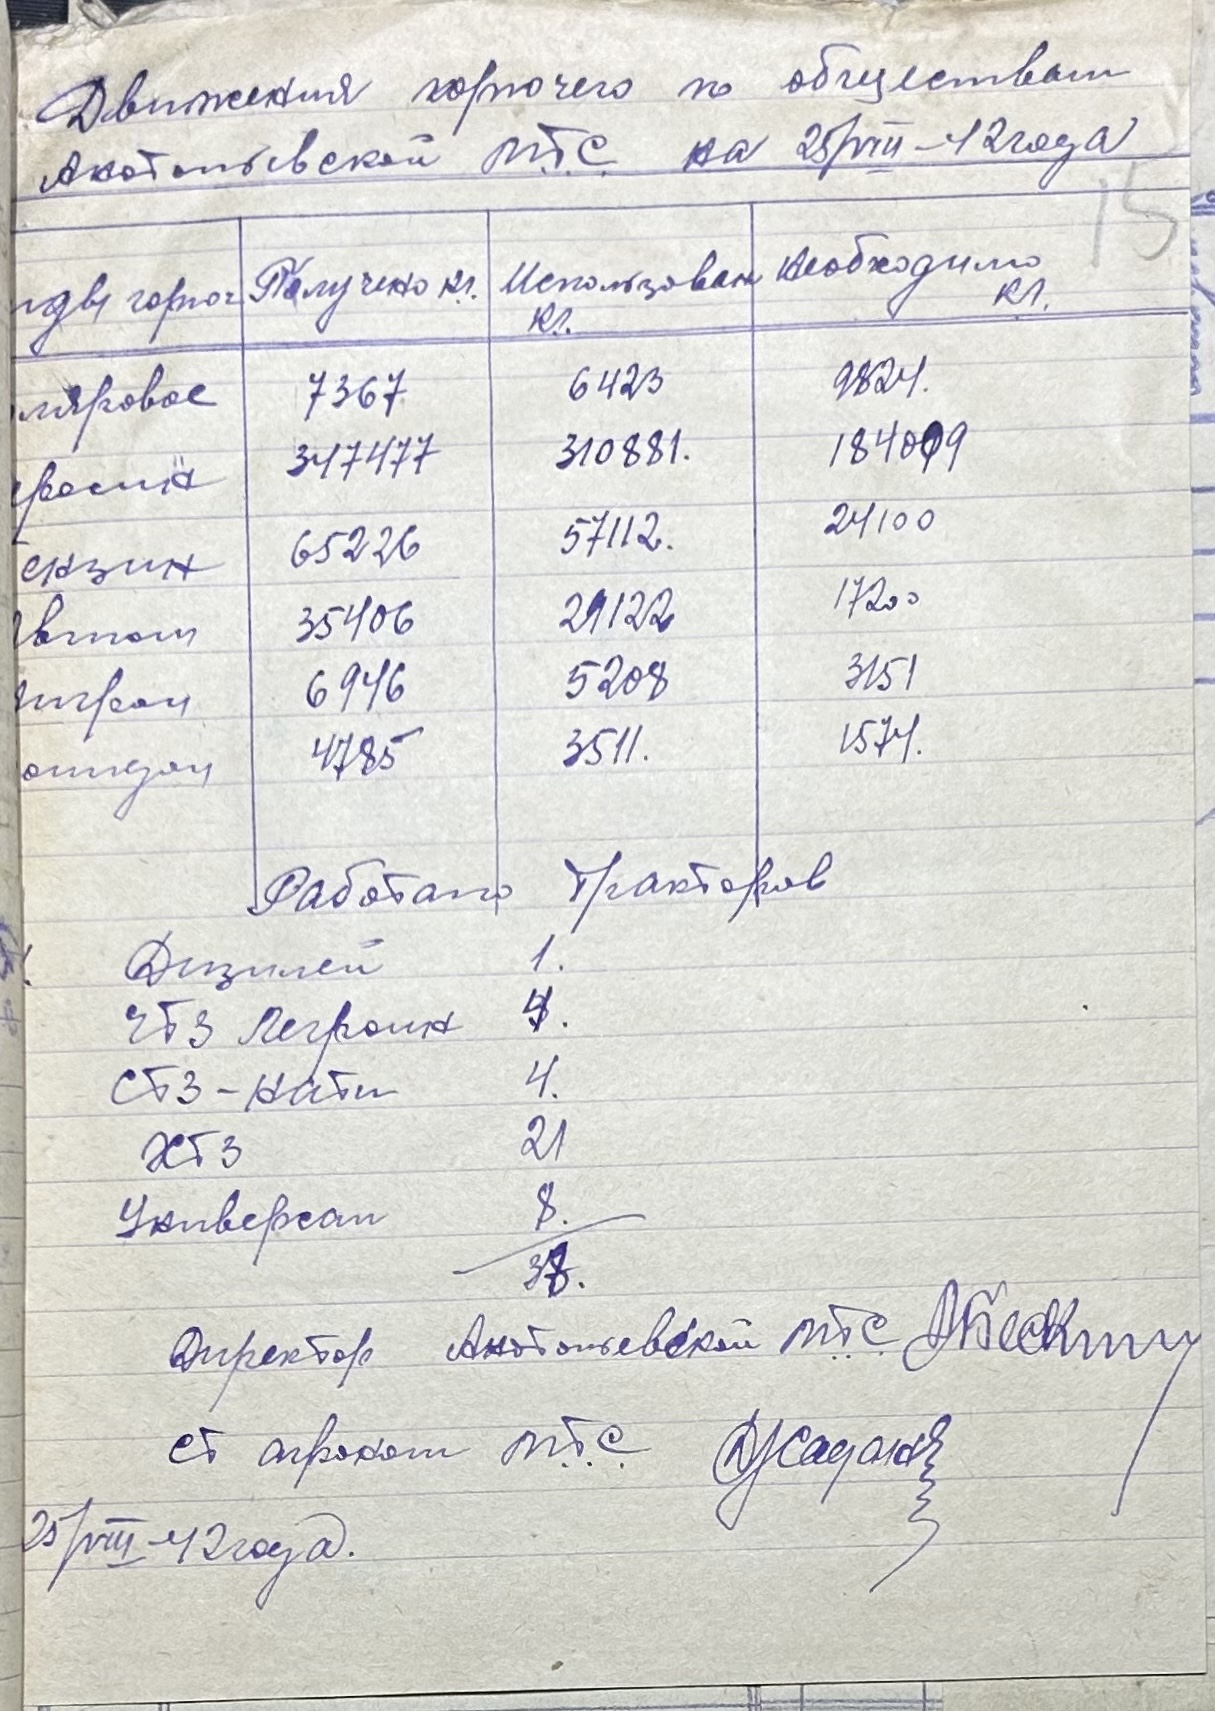 Движения горючего по обществам
Анатольевской М.Т.С. на 25/VIII-42 года
15
иды горюч Получено кг. Использован кг. Необходимо кг.
ляровое 7367 6423 9824.
росин 347477 310881. 184009
ензин 65226 57112. 24100
втол 35406 29122 17200
игрол 6946 5208 3151
олидол 4785 3511. 1574.
Работало Тракторов
Дизилей 1.
ЧТЗ Легроин 4.
СТЗ-Нати 4.
ХТЗ 21
Универсал 8.
38.
Директор Анатольевской М.Т.С.
Ст агроном М.Т.С.
25/VIII-42 года.